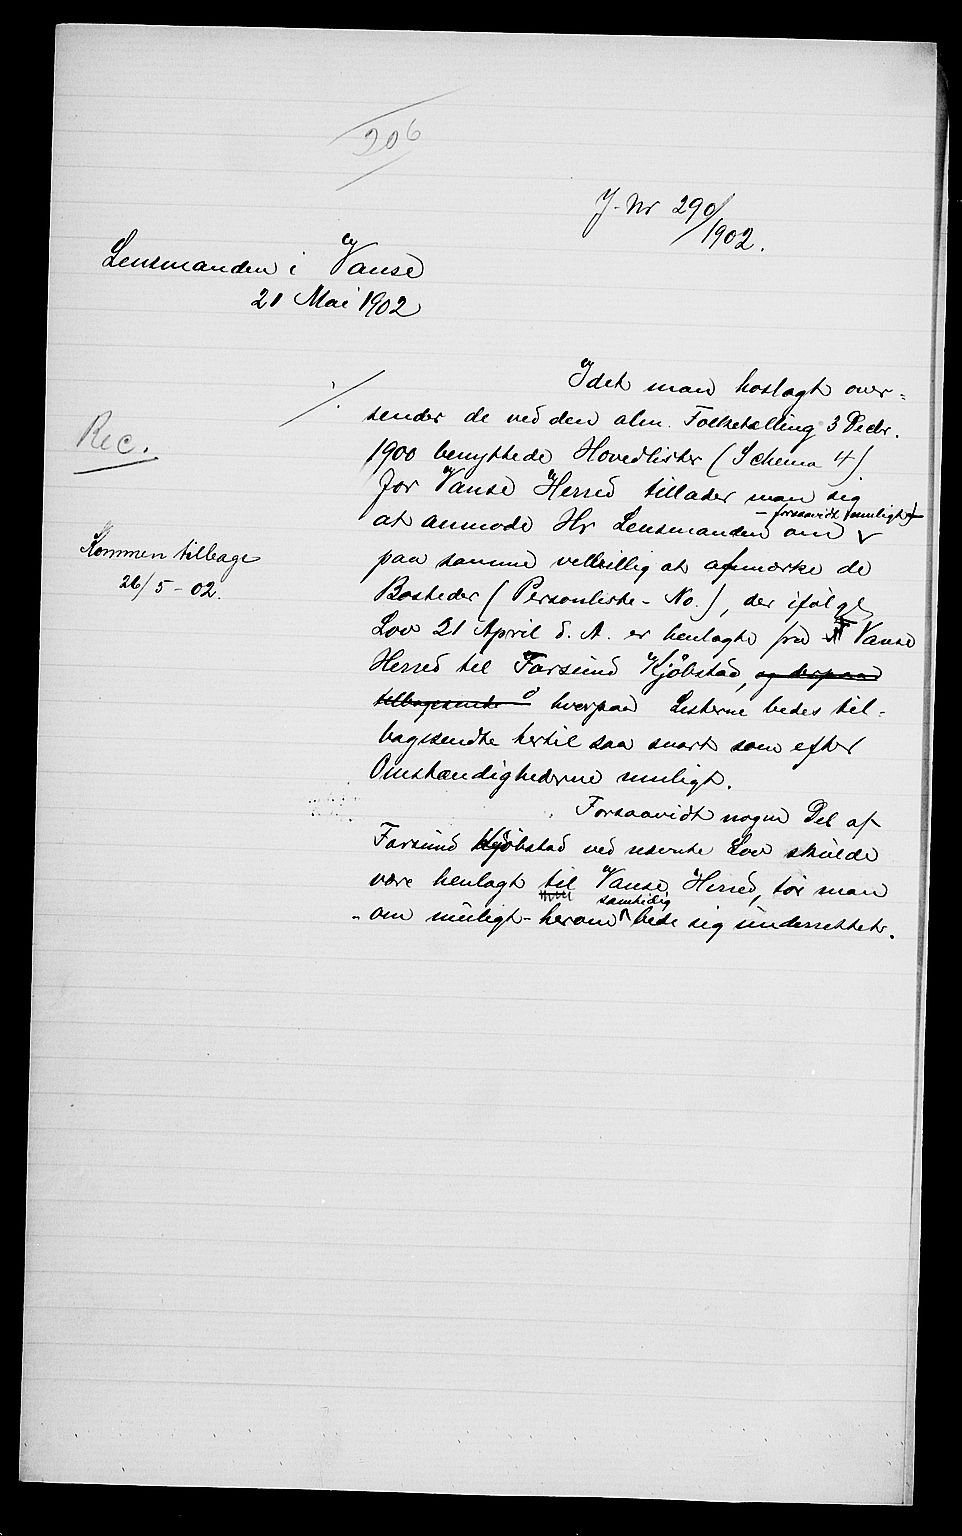 206
J.Nr 290/1902.
Lensmanden i Vanse
21 Mai 1902
Idet man hoslagt over-
sender de ved den alm. Folketælling 3 Decbr.
Rec.
1900 benyttede Hovedlister (Schema 4)
for Vanse Herred tillader man sig
- forsaavidt muligt -
at anmode Hr Lensmanden om
Kommen tilbage
26/5-02.
paa samme velvillig at afmærke de
Bosteder (Personliste-No.), der ifølge
Lov 21 April d. A. er henlagte fra Vanse
Herred til Farsund Kjøbstad, og derpaa
tilbagesende hvorpaa Listerne bedes til-
bagesendte hertil saa snart som efter
Omstændighederne muligt.
Forsaavidt nogen Del af
Farsund Kjøbstad ved nævnte Lov skulde
være henlagt til Vanse Herred, tør man
samtidig
- om muligt - herom bede sig underrettet.